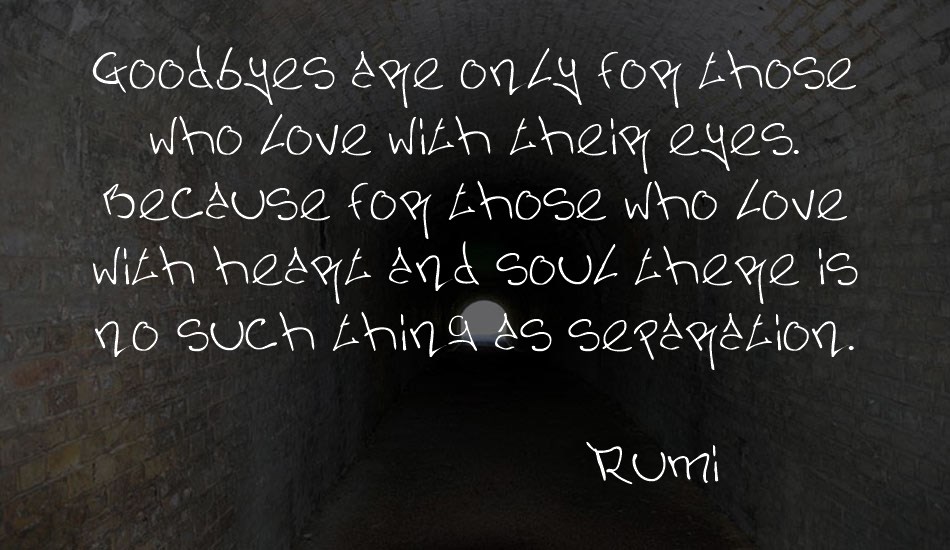 Goodbyes are only for those
who love with their eyes.
Because for those who love
with heart and soul there is
no such thing as separation.
Rumi